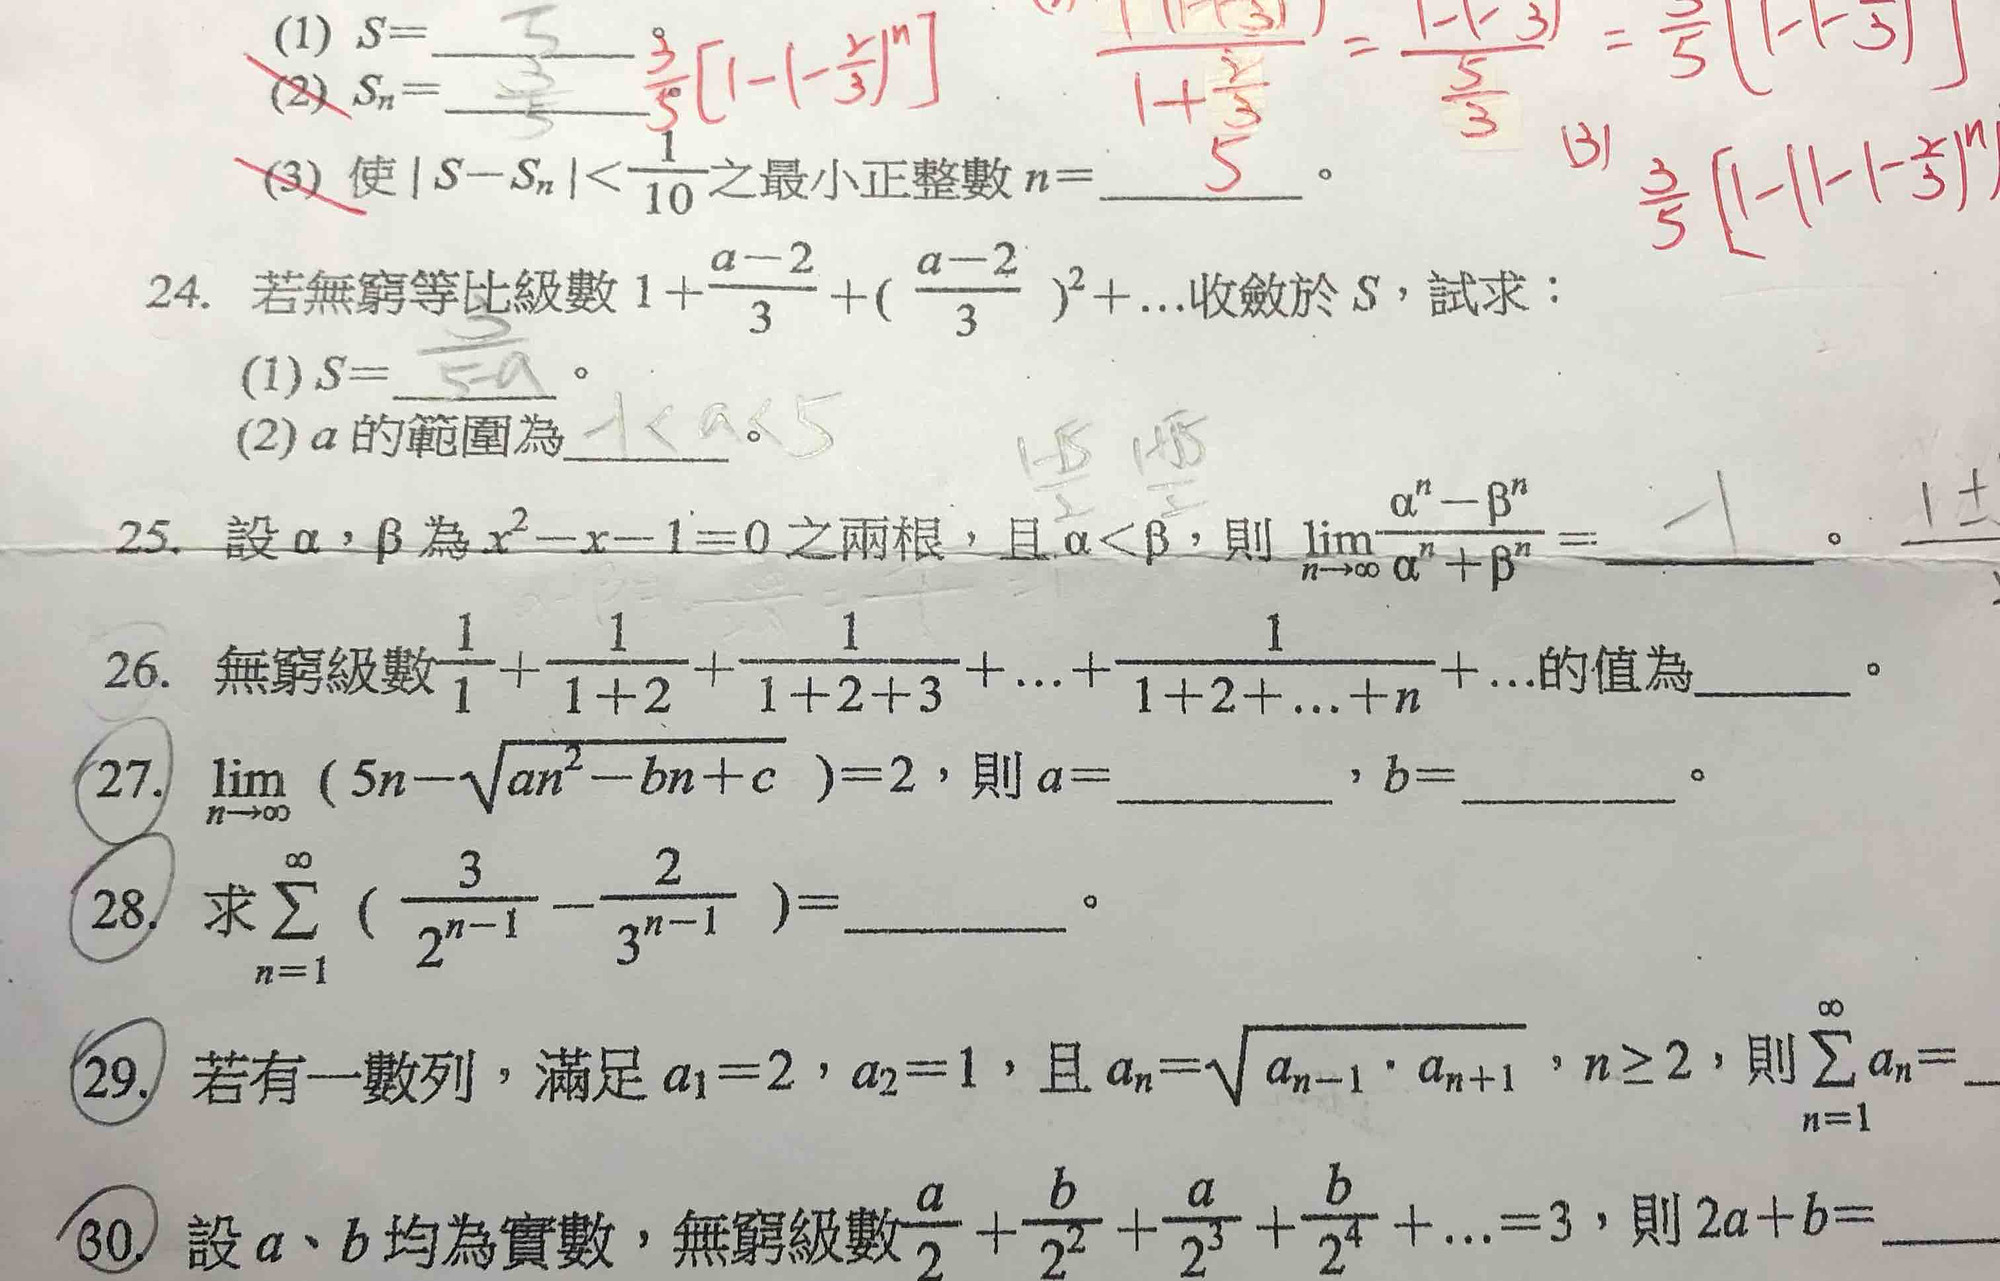 (1) S=____。
(2) Sₙ=____ 3/5[1-(-2/3)ⁿ]
(3) 使|S-Sₙ|<1/10之最小正整數 n= 5 。
(3) 3/5
24. 若無窮等比級數 1+(a-2)/3+((a-2)/3)²+…收斂於 S,試求:
(1) S= 3/(5-a) 。
(2) a 的範圍為 -1<a<5 。
25. 設 α,β 為 x²-x-1=0 之兩根,且 α<β,則 lim n→∞ (αⁿ-βⁿ)/(αⁿ+βⁿ)= -1 。
26. 無窮級數 1/1+1/(1+2)+1/(1+2+3)+…+1/(1+2+…+n)+…的值為____。
27. lim n→∞ (5n-√(an²-bn+c))=2,則 a=____,b=____。
28. 求 ∞ Σ n=1 (3/2ⁿ⁻¹-2/3ⁿ⁻¹)=____。
29. 若有一數列,滿足 a₁=2,a₂=1,且 aₙ=√(aₙ₋₁·aₙ₊₁),n≥2,則 ∞ Σ n=1 aₙ=
30. 設 a、b 均為實數,無窮級數 a/2+b/2²+a/2³+b/2⁴+…=3,則 2a+b=____